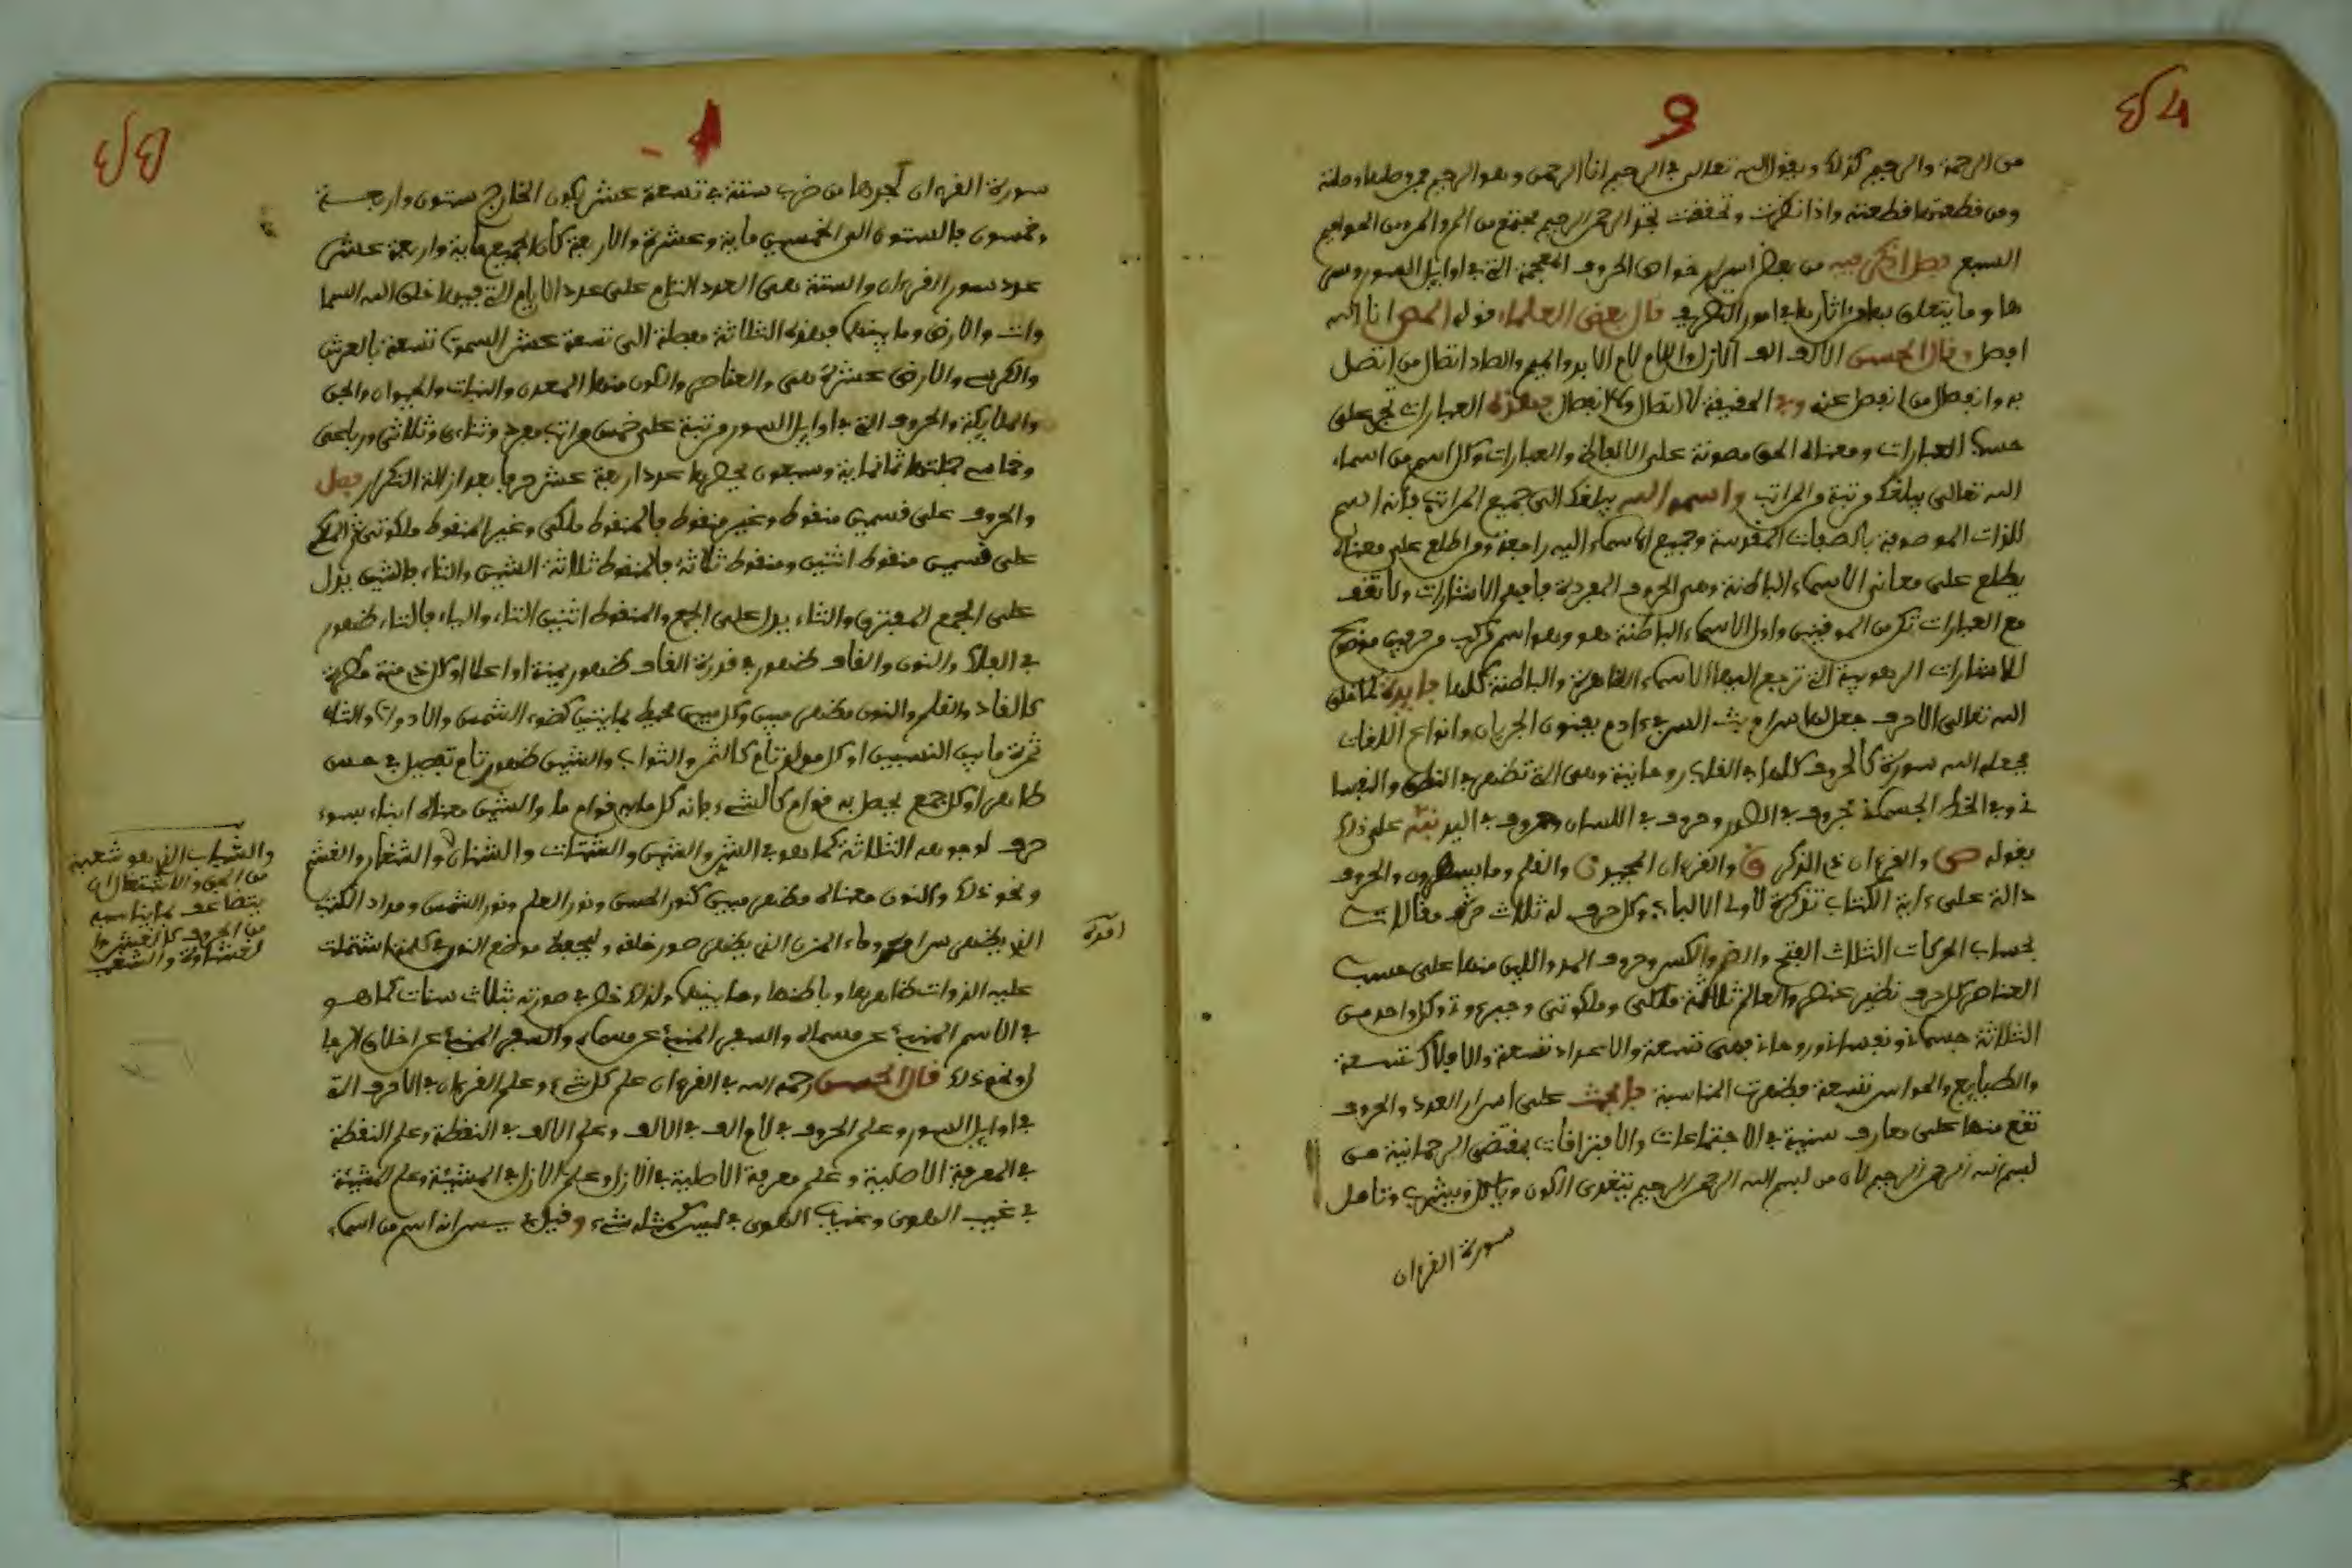 من الرحمة والرحيم كذلك ويقول الله تعالى في الرحيم انا الرحمن وهو الرحيم فمن وصلها وصلته
ومن قطعها قطعته واذا نظرت وتحققت تجد الرحمن الرحيم مجتمع من الر والمر ومن الحواميم
السبع فصل اذكر فيه من بعض اسرار خواص الحروف المعجمة التي في اوايل السور وسر
ها وما يتعلق بها واثارها في امور التصريف قال بعض العلماء قوله المص انا الله
افصل وقال الحسن الالف الف الازل واللام لام الابد والميم والصاد اتصال من اتصل
به وانفصال من انفصل عنه وفي الحقيقة لا اتصال ولا انفصال وهذه العبارات تجري على
حسب العبارات ومعناه الحق مصونة على الالفاظ والعبارات وكل اسم من اسماء
الله تعالى يبلغك مرتبة والمراتب واسم الله يبلغك الى جميع المراتب فانه اسم
للذات الموصوفة بالصفات المقدسة وجميع الاسماء اليه راجعة ومن اطلع على معناه
يطلع على معاني الاسماء الباطنة وهي الحروف المفردة فافهم الاشارات ولا تقف
مع العبارات تكن من الموقنين واول الاسماء الباطنة هو وهو اسم مركب من حرفين موضع
للاشارات الربوبية التي ترجع اليها الاسماء الظاهرة والباطنة كلها فايدة لما خلق
الله تعالى الاحرف جعل لها سرا وبث السر في ءادم بفنون الجريان وانواع اللغات
فجعله الله سورة كالحروف كلها في القلب روحانية وهي التي تظهر في النطق والنفسا
ني وفي الخط الجسماني فحروف في الصدور وحروف في اللسان وحروف في اليد نبه على ذلك
بقوله ص والقرءان ذي الذكر ق والقرءان المجيد ن والقلم وما يسطرون والحروف
دالة على ءاية الكتاب تذكرة لاولي الالباب وكل حرف له ثلاث مقالات
بحساب الحركات الثلاث الفتح والضم والكسر وحروف المد واللين منها على حسب
العناصر كل حرف نظير عنصر والعالم ثلاثة ملكي وملكوتي وجبروتي وكل واحد من
الثلاثة جسماني ونفساني وروحاني فهي تسعة والاعداد تسعة والافلاك تسعة
والطبايع والحواس تسعة فظهرت المناسبة فابحث على اسرار العدد والحروف
تقع منها على معارف سنية في الاجتماعات والافتراقات بمقتضى الرحمانية من
بسم الله الرحمن الرحيم لان من بسم الله الرحمن الرحيم يتغذى الكون وياكل ويشرب وتامل
سورة القرءان
سورة القرءان تجدها من ضرب ستة في تسعة عشر يكون الخارج ستون واربعة
وخمسون فالستون الى الخمسين ماية وعشرة والاربعة كان الجميع ماية واربعة عشر
عدد سور القرءان والستة هي العدد التام على عدد الايام التي فيها خلق الله السما
وات والارض وما بينهما فهذه الثلاثة مفصلة الى تسعة عشر السموات تسعة بالعرش
والكرسي والارض عشرة هي والعناصر والكون منها المعدن والنبات والحيوان والجن
والملايكة والحروف التي في اوايل السور مرتبة على خمس مراتب مفرد وثناءي وثلاثي ورباعي
وخماسي جملتها ثمانية وسبعون يحصرها عدد اربعة عشر حرفا بعد ازالة التكرار فصل
والحروف على قسمين منقوط وغير منقوط فالمنقوط ملكي وغير المنقوط ملكوتي
على قسمين منقوط اثنين ومنقوط ثلاثة فالمنقوط ثلاثة الشين والثاء فالشين يدل
على الجمع المفترق والثاء يدل على الجمع والمنقوط اثنين التاء والياء فالتاء ظهور
في الفلك والنون والقاف ظهور في قدرة القاف ظهور
كالقاف والقلم والنون مظهر مبين وكل مبين محيط كضوء الشمس والادوات والثاء
ثمرة ما بين النسبين او كل مولد تام كالثمر والثواب والشين ظهور تام تفصيل في حس
ظاهر او كل جمع يحصل به قوام كالشيء فانه كل ما به قوام ما والشين معناه انباء بسوء
حرف لوجوهه الثلاثة كما هو في الشر والشين والشتات والشنان والشغار والغش
ونحو ذلك والنون معناه مظهر مبين كنور الحس ونور العلم ونور الشمس ومداد الكتب
الذي يظهر سرا وماء المزن الذي يظهر صور خلقه وليجعله موضع النور كلمة اشتملت
عليه الذوات ظاهرها وباطنها وما بينهما ولذلك خط في صورته ثلاث سنات كما هو
في الاسم المنبئ عن مسماه والسفر المنبئ عن مسماه والسفر المنبئ عن اخلاق الرجا
ل ونحو ذلك قال الحسن رحمه الله في القرءان علم كل شيء وعلم القرءان في الاحرف التي
في اوايل السور وعلم الحروف في لام الف في الالف وعلم الالف في النقطة وعلم النقطة
في المعرفة الاصلية وعلم معرفة الاصلية في الازل وعلم الازل في المشيئة وعلم المشيئة
في غيب الهوى وغيب الهوى في ليس كمثله شيء وقيل في يس انه اسم من اسماء
والشباب الذي هو شعبة
من الجن والاشتعال
يتضاعف بما يناسبه
من الحروف كالعشر وا
لغشاوة والشعب